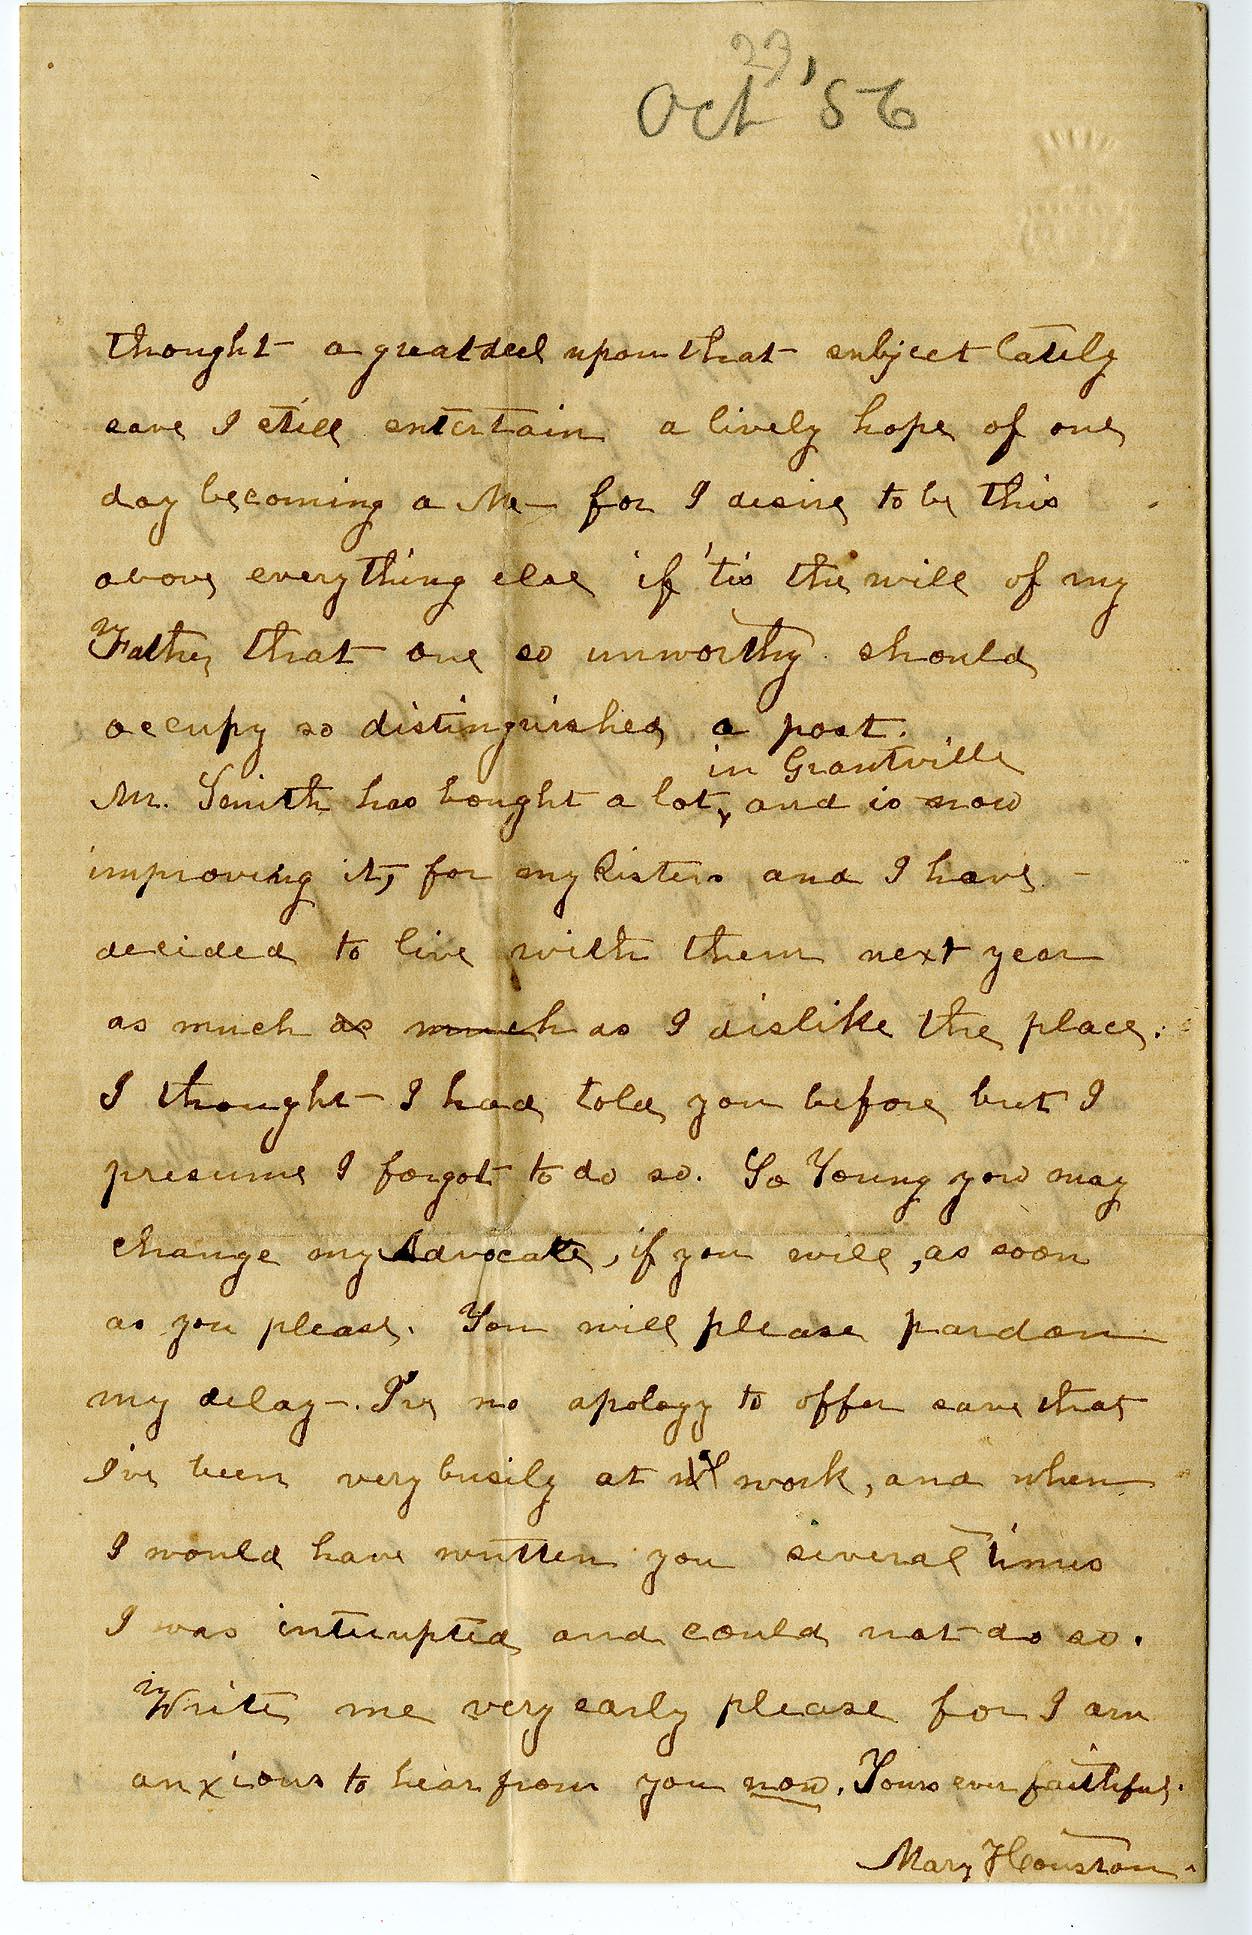 23,
Oct '56
thought a great deal upon that subject lately
save I still entertain a lively hope of one
day becoming a M— for I desire to be this
above everything else if 'tis the will of my
Father that one so unworthy should
occupy so distinguished a post.
in Grantville
Mr. Smith has bought a lot, and is now
improving it, for my Sisters and I have
decided to live with them next year
as much as much as I dislike the place.
I thought I had told you before but I
presume I forgot to do so. So Young you may
change my Advocate, if you will, as soon
as you please. You will please pardon
my delay—. I've no apology to offer save that
I've been very busily at work, and when
I would have written you several times
I was interrupted and could not do so.
Write me very early please for I am
anxious to hear from you now. Yours ever faithful.
Mary Houston.